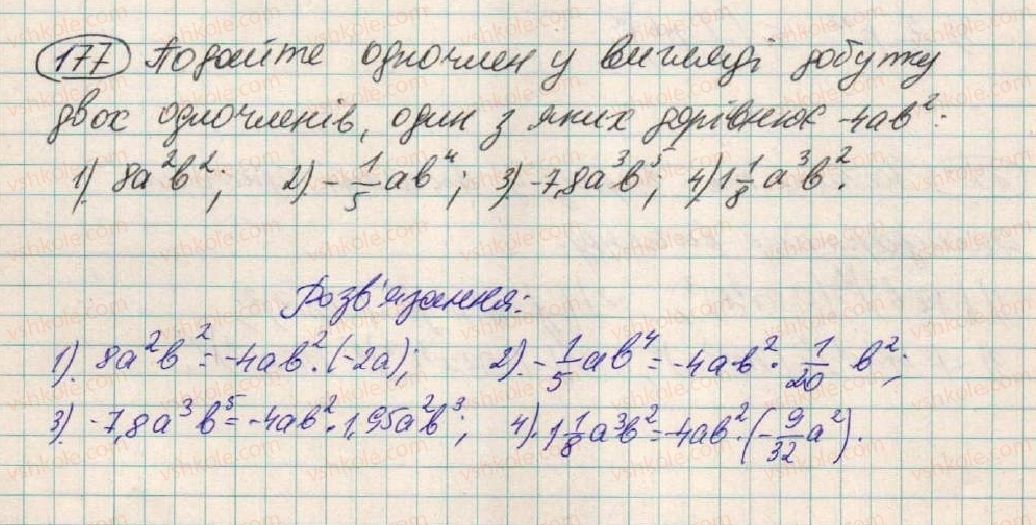 177 Подайте одночлен у вигляді добутку
двох одночленів, один з яких дорівнює -4ab²:
1) 8a²b²; 2) -1/5 ab⁴; 3) -7,8a³b⁵; 4) 1 1/8 a³b².
Розв'язання:
1) 8a²b² = -4ab² · (-2a); 2) -1/5 ab⁴ = -4ab² · 1/20 b²;
3) -7,8a³b⁵ = -4ab² · 1,95a²b³; 4) 1 1/8 a³b² = -4ab² · (-9/32 a²).